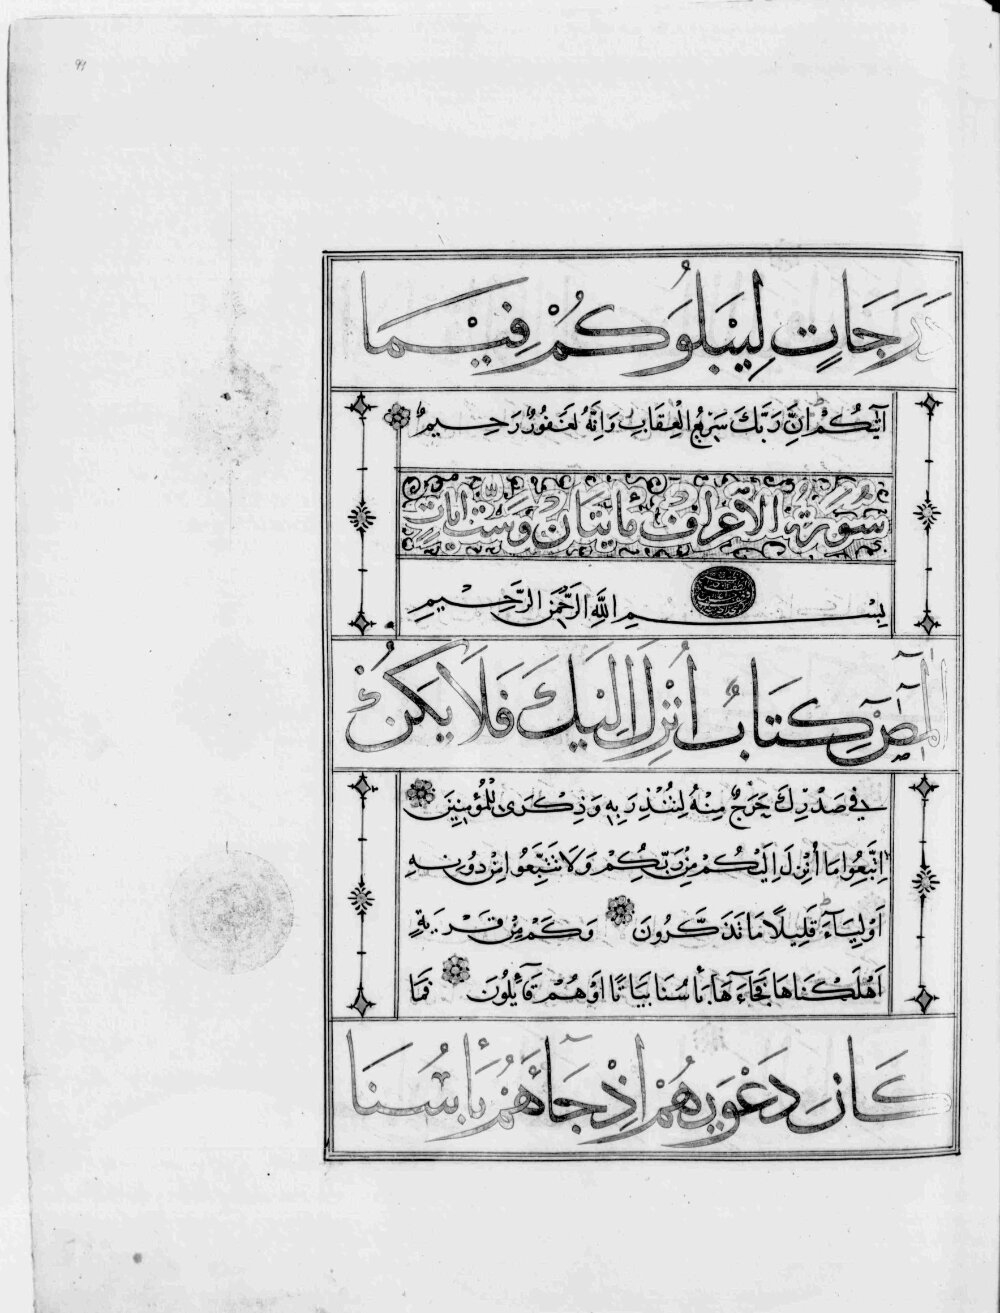 دَرَجَاتٍ لِيَبْلُوَكُمْ فِيْمَا
آتٰيكُمْ اِنَّ رَبَّكَ سَرِيعُ الْعِقَابِ وَاِنَّهُ لَغَفُورٌ رَحِيمٌ
سُورَةُ الْاَعْرَافِ مِائَتَانِ وَسِتُّ اٰيَاتٍ
بِسْمِ اللهِ الرَّحْمٰنِ الرَّحِيمِ
الٓمٓصٓ كِتَابٌ اُنْزِلَ اِلَيْكَ فَلَا يَكُنْ
فِي صَدْرِكَ حَرَجٌ مِنْهُ لِتُنْذِرَ بِهِ وَذِكْرَى لِلْمُؤْمِنِينَ
اِتَّبِعُوا مَا اُنْزِلَ اِلَيْكُمْ مِنْ رَبِّكُمْ وَلَا تَتَّبِعُوا مِنْ دُونِهِ
اَوْلِيَاءَ قَلِيلًا مَا تَذَكَّرُونَ وَكَمْ مِنْ قَرْيَةٍ
اَهْلَكْنَاهَا فَجَاءَهَا بَأْسُنَا بَيَاتًا اَوْ هُمْ قَائِلُونَ فَمَا
كَانَ دَعْوٰيهُمْ اِذْ جَاءَهُمْ بَأْسُنَا